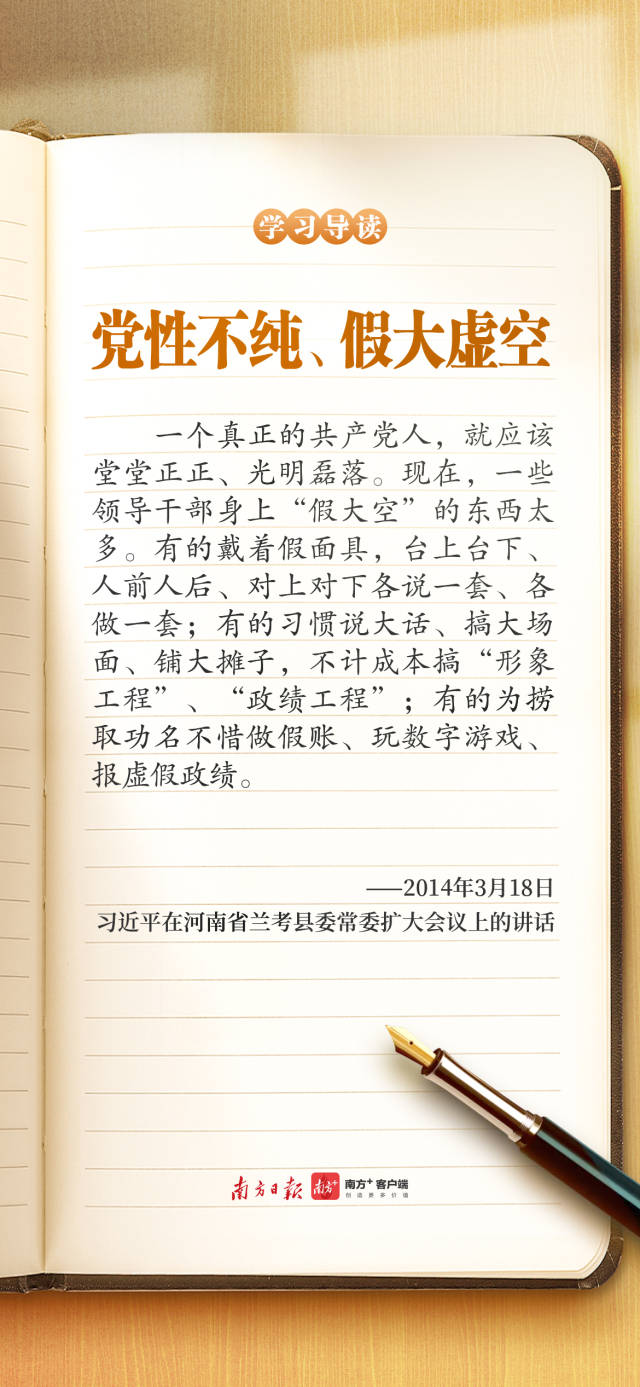 学习导读
党性不纯、假大虚空
一个真正的共产党人，就应该
堂堂正正、光明磊落。现在，一些
领导干部身上“假大空”的东西太
多。有的戴着假面具，台上台下、
人前人后、对上对下各说一套、各
做一套；有的习惯说大话、搞大场
面、铺大摊子，不计成本搞“形象
工程”、“政绩工程”；有的为捞
取功名不惜做假账、玩数字游戏、
报虚假政绩。
——2014年3月18日
习近平在河南省兰考县委常委扩大会议上的讲话
南方日报 南方+ 南方+ 客户端
创造更多价值